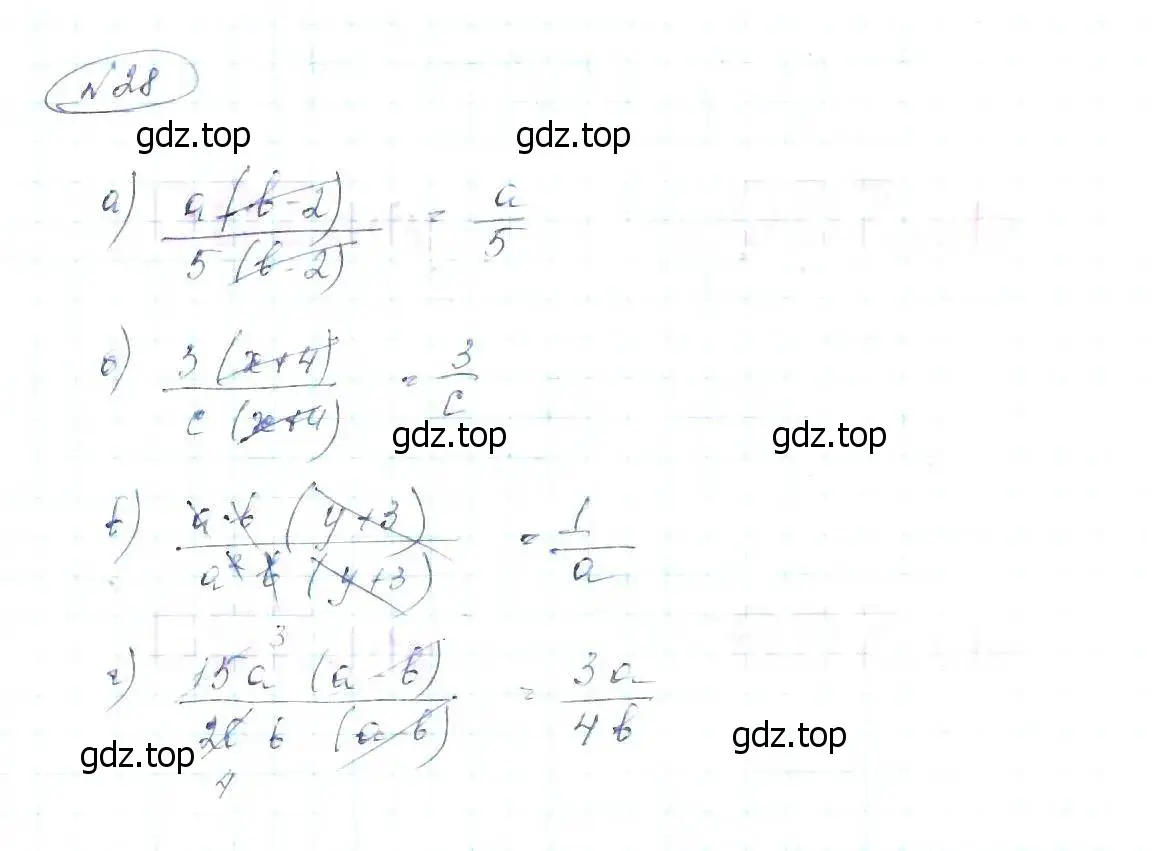 №28
gdz.top gdz.top
а) a(b-2) / 5(b-2) = a/5
б) 3(x+4) / c(x+4) = 3/c
gdz.top gdz.top
в) a·b(y+3) / a²b(y+3) = 1/a
г) 15a³(a-b) / 20b(a-b) = 3a/4b
4
gdz.top gdz.top